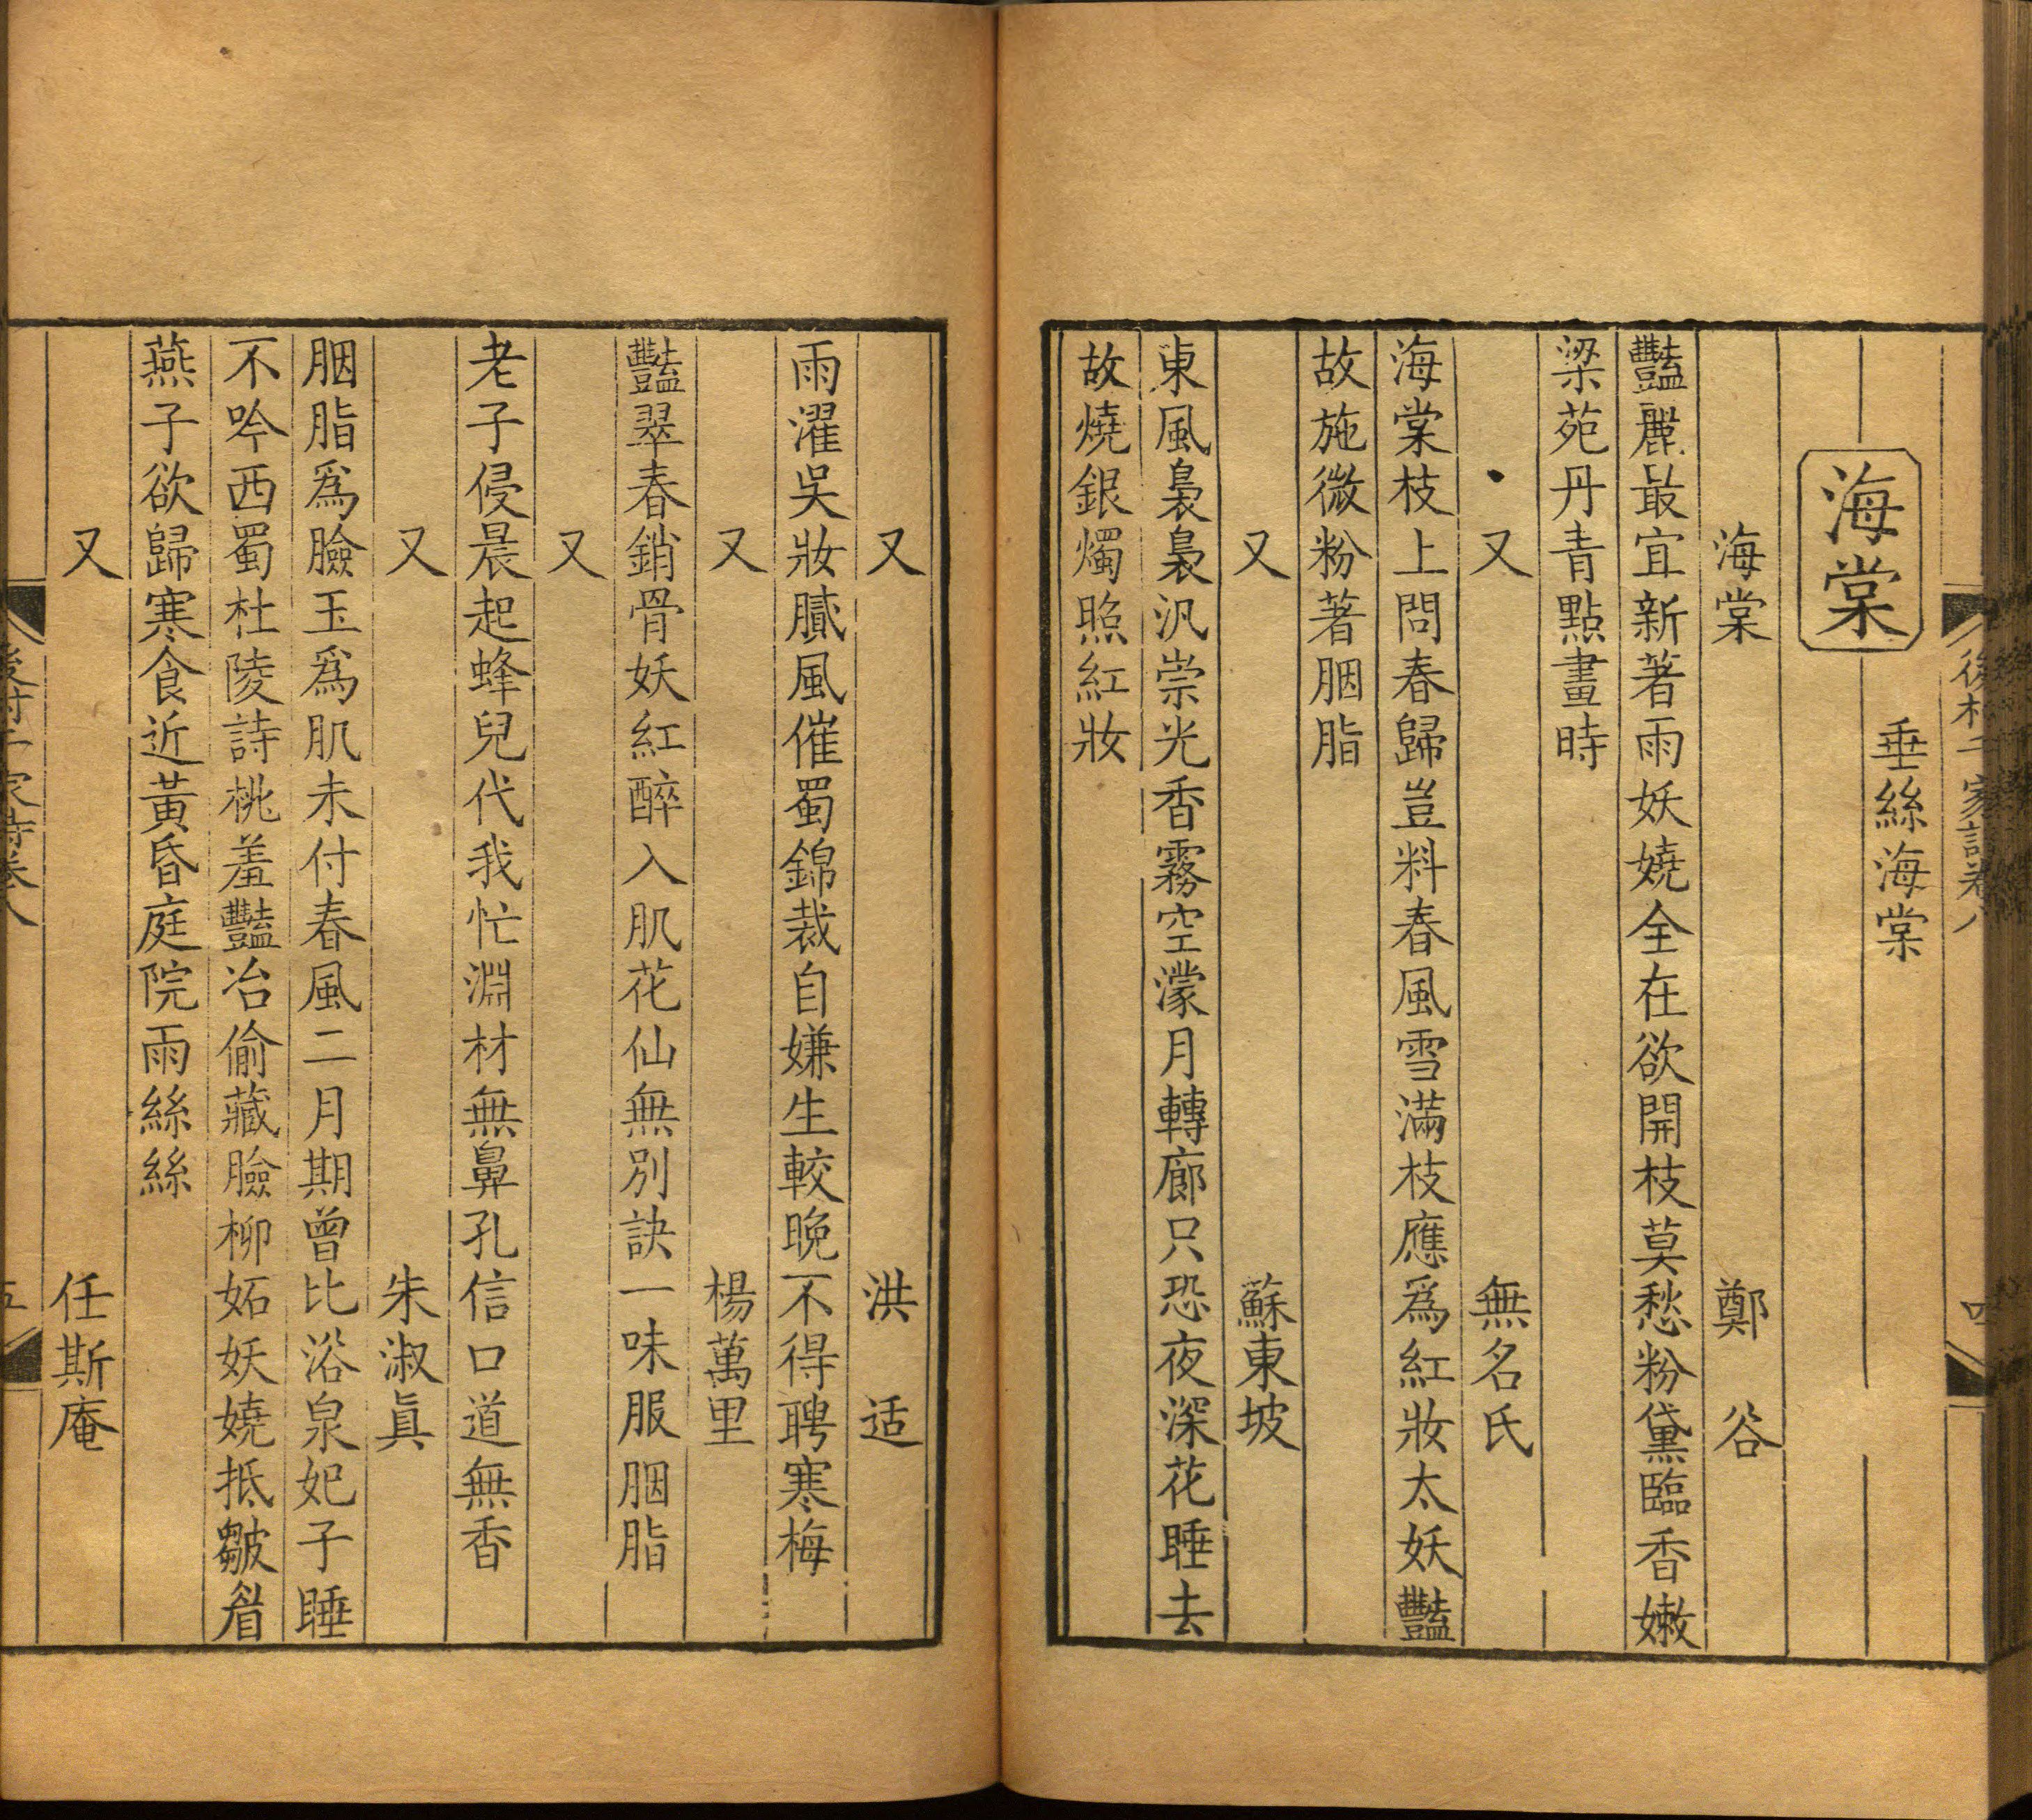 後村千家詩卷八
垂絲海棠
海棠
海棠 鄭 谷
豔麗最宜新著雨妖嬈全在欲開枝莫愁粉黛臨香嫩
梁苑丹青點畫時
又 無名氏
海棠枝上問春歸豈料春風雪滿枝應爲紅妝太妖豔
故施微粉著胭脂
又 蘇東坡
東風裊裊汎崇光香霧空濛月轉廊只恐夜深花睡去
故燒銀燭照紅妝
又 洪 适
雨濯吳妝膩風催蜀錦裁自嫌生較晚不得聘寒梅
又 楊萬里
豔翠春銷骨妖紅醉入肌花仙無別訣一味服胭脂
又
老子侵晨起蜂兒代我忙淵材無鼻孔信口道無香
又 朱淑眞
胭脂爲臉玉爲肌未付春風二月期曾比浴泉妃子睡
不吟西蜀杜陵詩桃羞豔冶偷藏臉柳妬妖嬈抵皺眉
燕子欲歸寒食近黃昏庭院雨絲絲
又 任斯庵
後村千家詩卷八
五